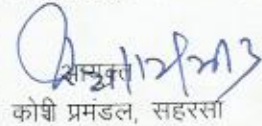 21/12/2013
आयुक्त
कोशी प्रमंडल, सहरसा